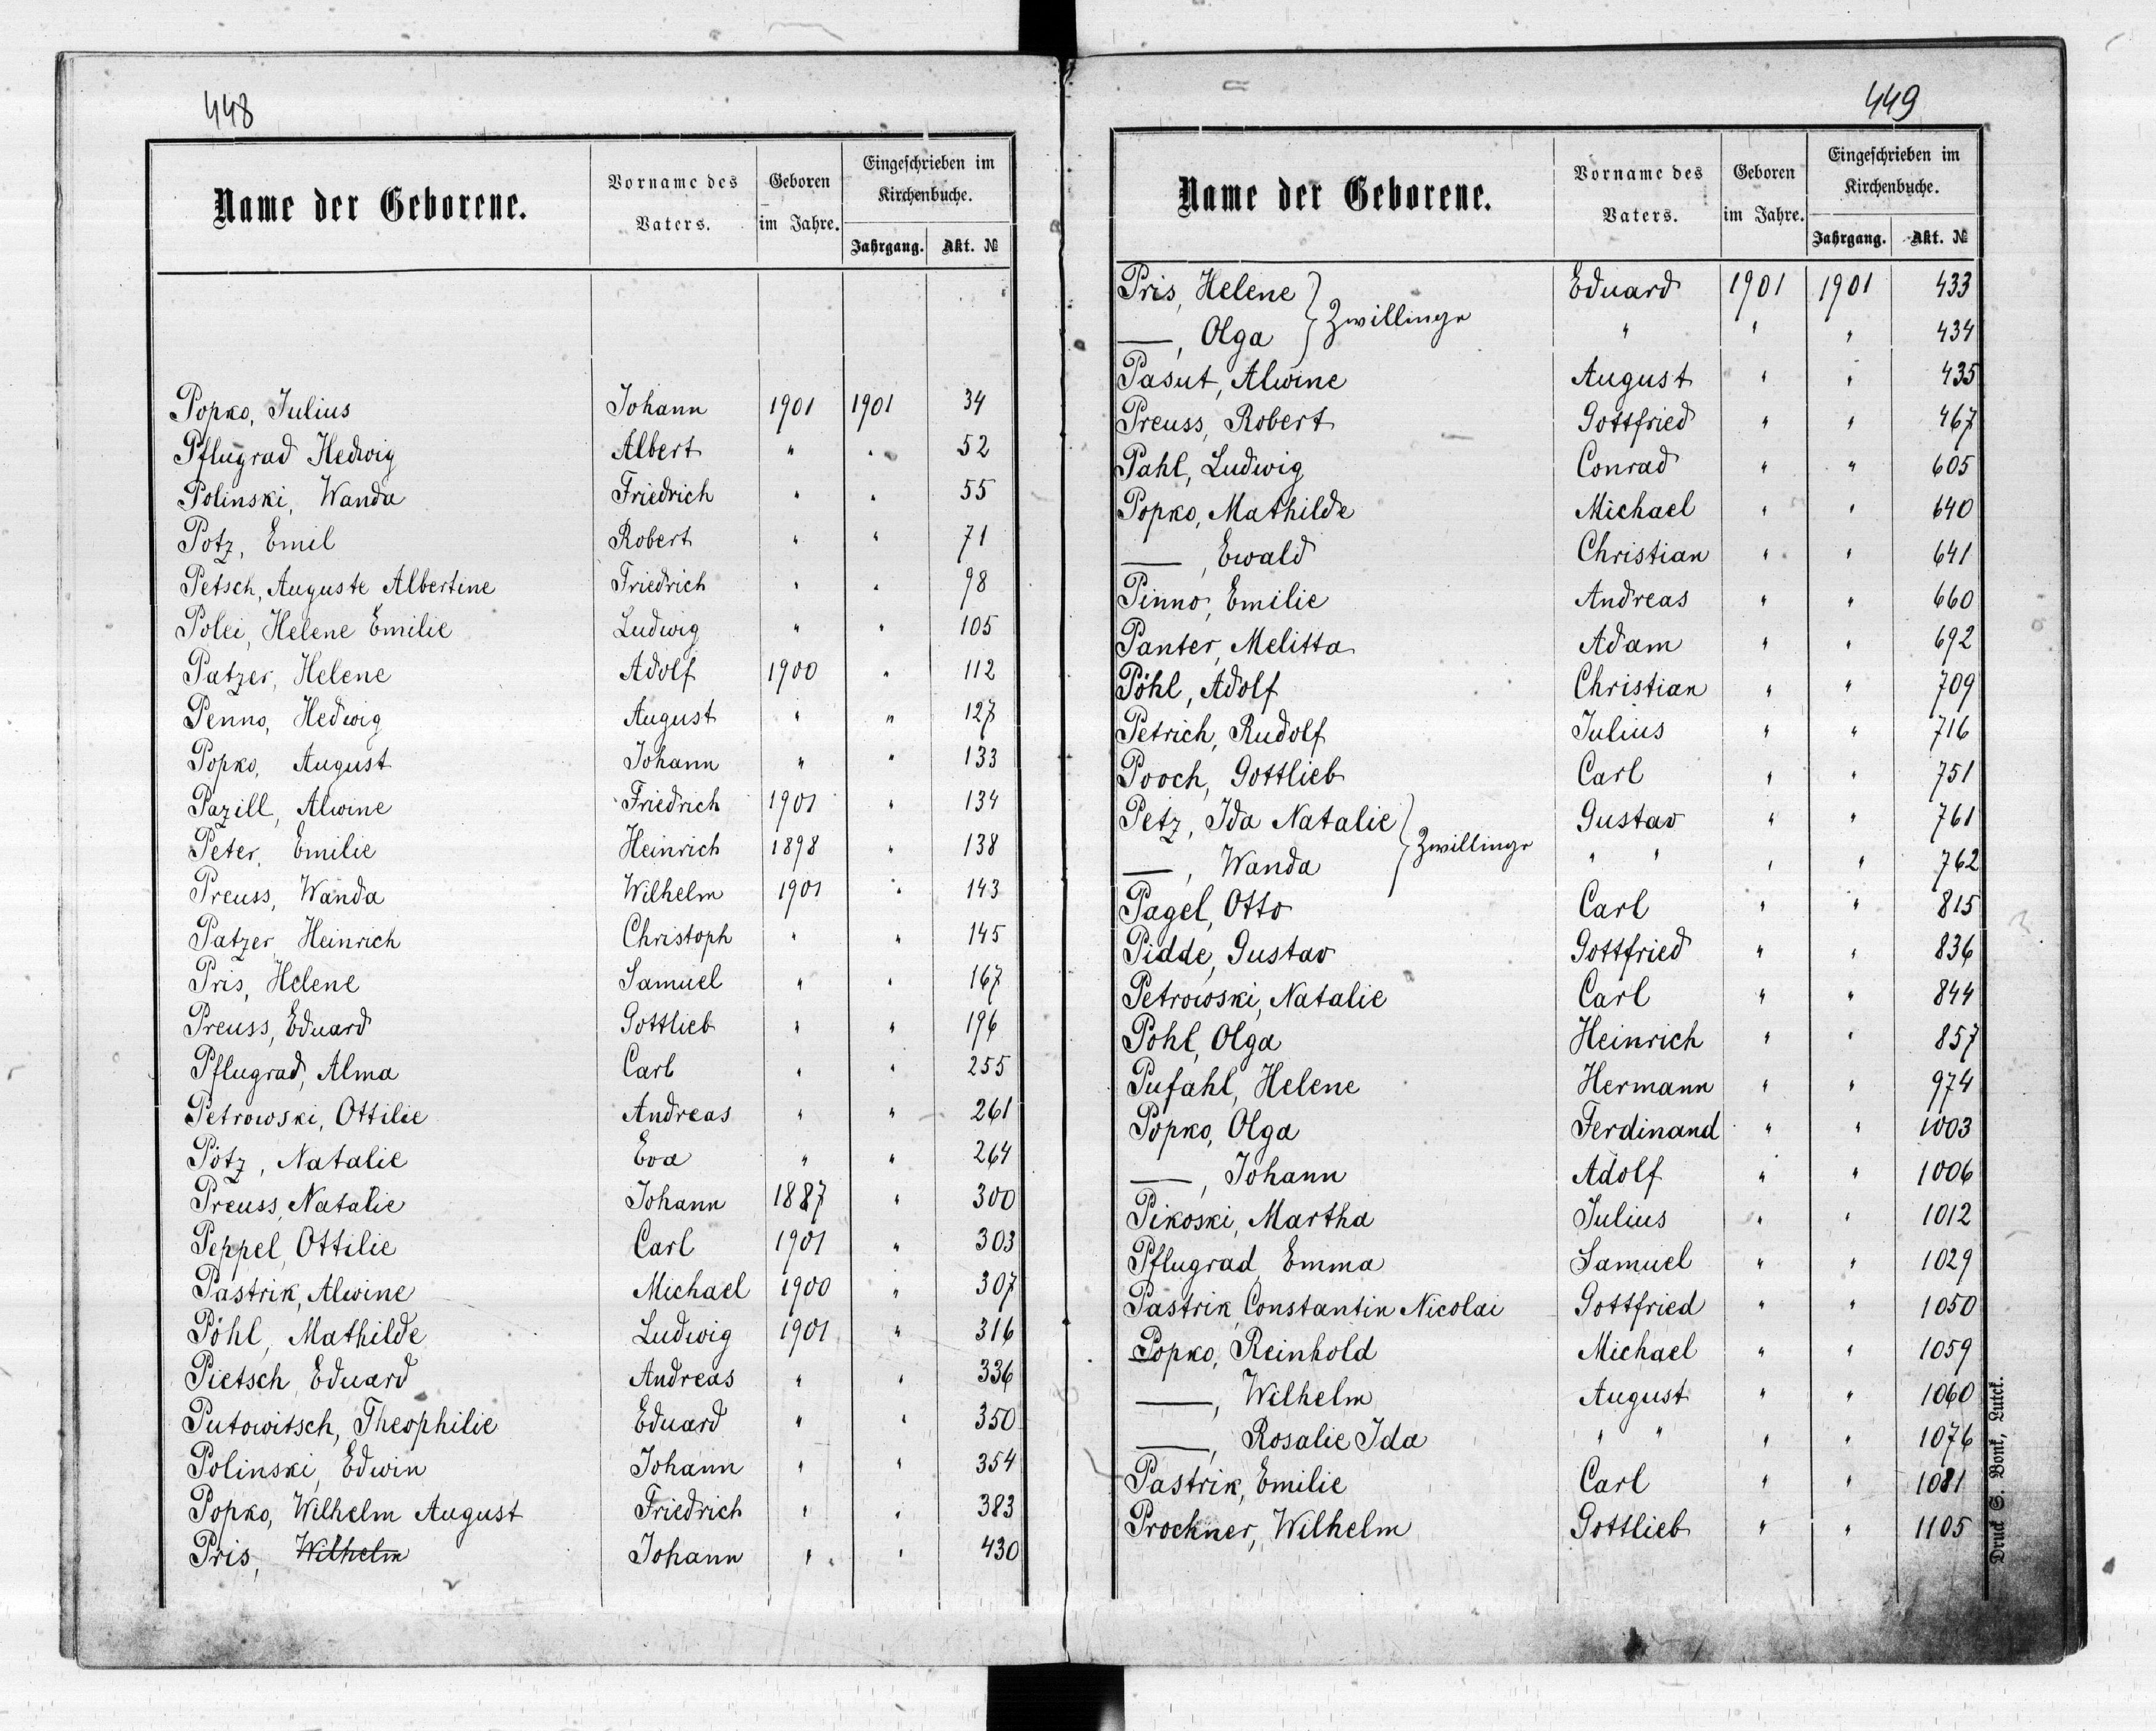 448
Name der Geborene. Vorname des Vaters. Geboren im Jahre. Eingeschrieben im Kirchenbuche. Jahrgang. Akt. №
Popko, Julius Johann 1901 1901 34
Pflugrad Hedwig Albert " " 52
Polinski, Wanda Friedrich " " 55
Potz, Emil Robert " " 71
Petsch, Auguste Albertine Friedrich " " 98
Polei, Helene Emilie Ludwig " " 105
Patzer, Helene Adolf 1900 " 112
Penno, Hedwig August " " 127
Popko, August Johann " " 133
Pazill, Alwine Friedrich 1901 " 134
Peter, Emilie Heinrich 1898 " 138
Preuss, Wanda Wilhelm 1901 " 143
Patzer Heinrich Christoph " " 145
Pris, Helene Samuel " " 167
Preuss, Eduard Gottlieb " " 196
Pflugrad, Alma Carl " " 255
Petrowski, Ottilie Andreas " " 261
Pötz, Natalie Eva " " 264
Preuss, Natalie Johann 1887 " 300
Peppel, Ottilie Carl 1901 " 303
Pastrik, Alwine Michael 1900 " 307
Pöhl, Mathilde Ludwig 1901 " 316
Pietsch, Eduard Andreas " " 336
Putowitsch, Theophilie Eduard " " 350
Polinski, Edwin Johann " " 354
Popko, Wilhelm August Friedrich " " 383
Pris, Wilhelm Johann " " 430
449
Name der Geborene. Vorname des Vaters. Geboren im Jahre. Eingeschrieben im Kirchenbuche. Jahrgang. Akt. №
Pris, Helene } Zwillinge Eduard 1901 1901 433
—, Olga " " " 434
Pasut, Alwine August " " 435
Preuss, Robert Gottfried " " 467
Pahl, Ludwig Conrad " " 605
Popko, Mathilde Michael " " 640
—, Ewald Christian " " 641
Pinno, Emilie Andreas " " 660
Panter, Melitta Adam " " 692
Pöhl, Adolf Christian " " 709
Petrich, Rudolf Julius " " 716
Pooch, Gottlieb Carl " " 751
Petz, Ida Natalie } Zwillinge Gustav " " 761
—, Wanda " " " " 762
Pagel, Otto Carl " " 815
Pidde, Gustav Gottfried " " 836
Petrowski, Natalie Carl " " 844
Pohl, Olga Heinrich " " 857
Pufahl, Helene Hermann " " 974
Popko, Olga Ferdinand " " 1003
—, Johann Adolf " " 1006
Pikoski, Martha Julius " " 1012
Pflugrad, Emma Samuel " " 1029
Pastrik, Constantin Nicolai Gottfried " " 1050
Popko, Reinhold Michael " " 1059
—, Wilhelm August " " 1060
—, Rosalie Ida " " " " 1076
Pastrik, Emilie Carl " " 1081
Prochner, Wilhelm Gottlieb " " 1105
Druck S. Bonk, Lutck.